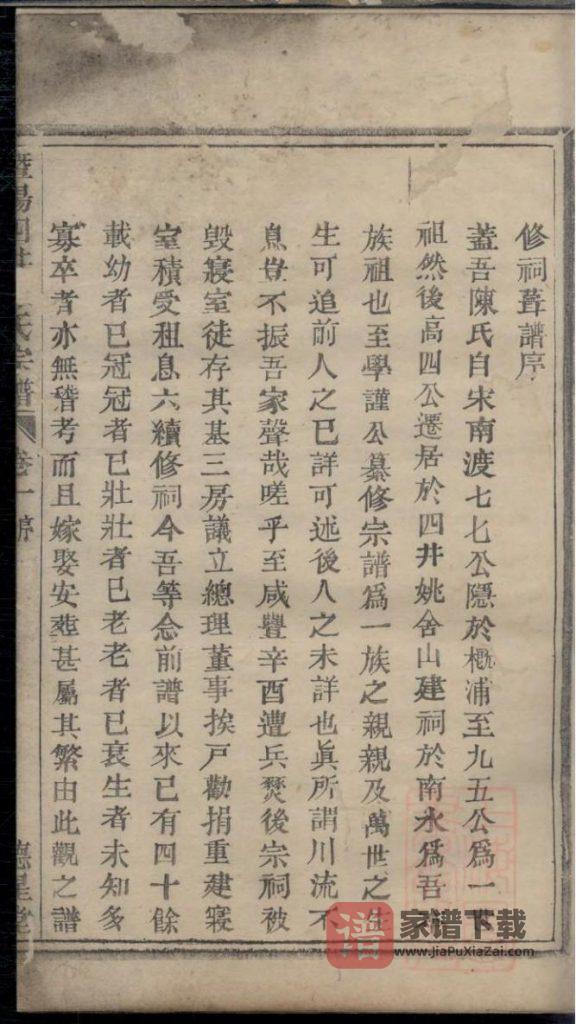 修祠葺譜序
蓋吾陳氏自宋南渡七七公隱於概浦至九五公爲一世
祖然後高四公遷居於四井姚舍山建祠於南永爲吾
族祖也至學謹公纂修宗譜爲一族之親親及萬世之生
生可追前人之已詳可述後人之未詳也眞所謂川流不
息豈不振吾家聲哉嗟乎至咸豐辛酉遭兵燹後宗祠被
毀寢室徒存其基三房議立總理董事挨戸勸捐重建寢
室積受租息六續修祠今吾等念前譜以來已有四十餘
載幼者已冠冠者已壯壯者已老老者已衰生者未知多
寡卒者亦無稽考而且嫁娶安塟甚屬其繁由此觀之譜
暨陽四井 氏宗譜 卷一 序 德星堂
譜
家谱下载
www.JiaPuXiaZai.com